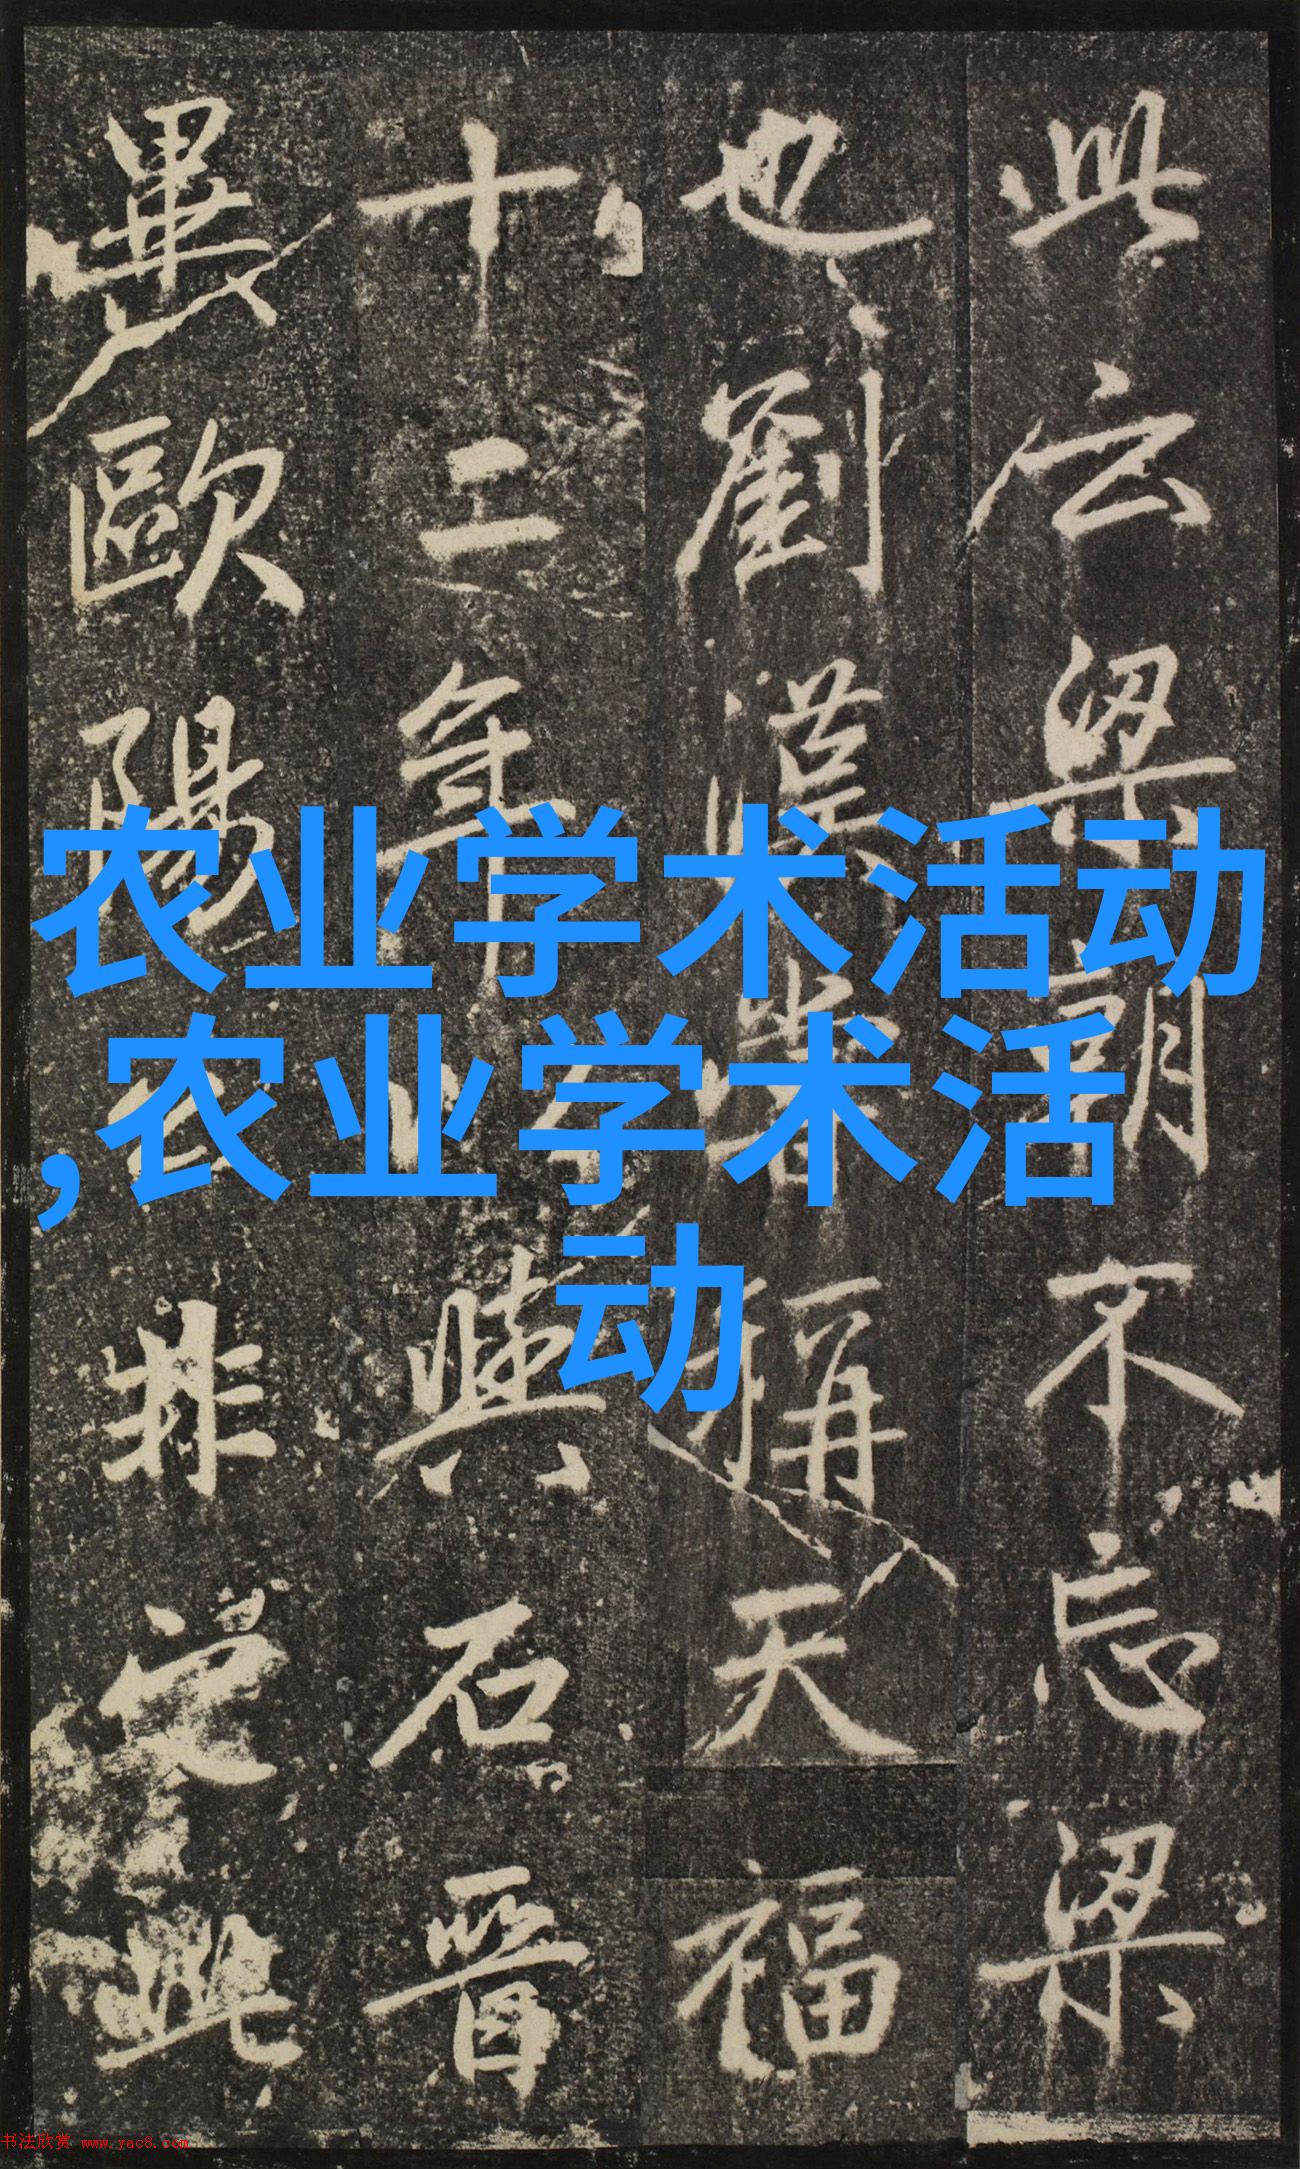 此云梁朝不忘梁
也劉漢背稱天福
十二年與石晉
畢歐陽公非受此
农业学术活动
,农业学术活
动
书法欣赏 www.yac8.com